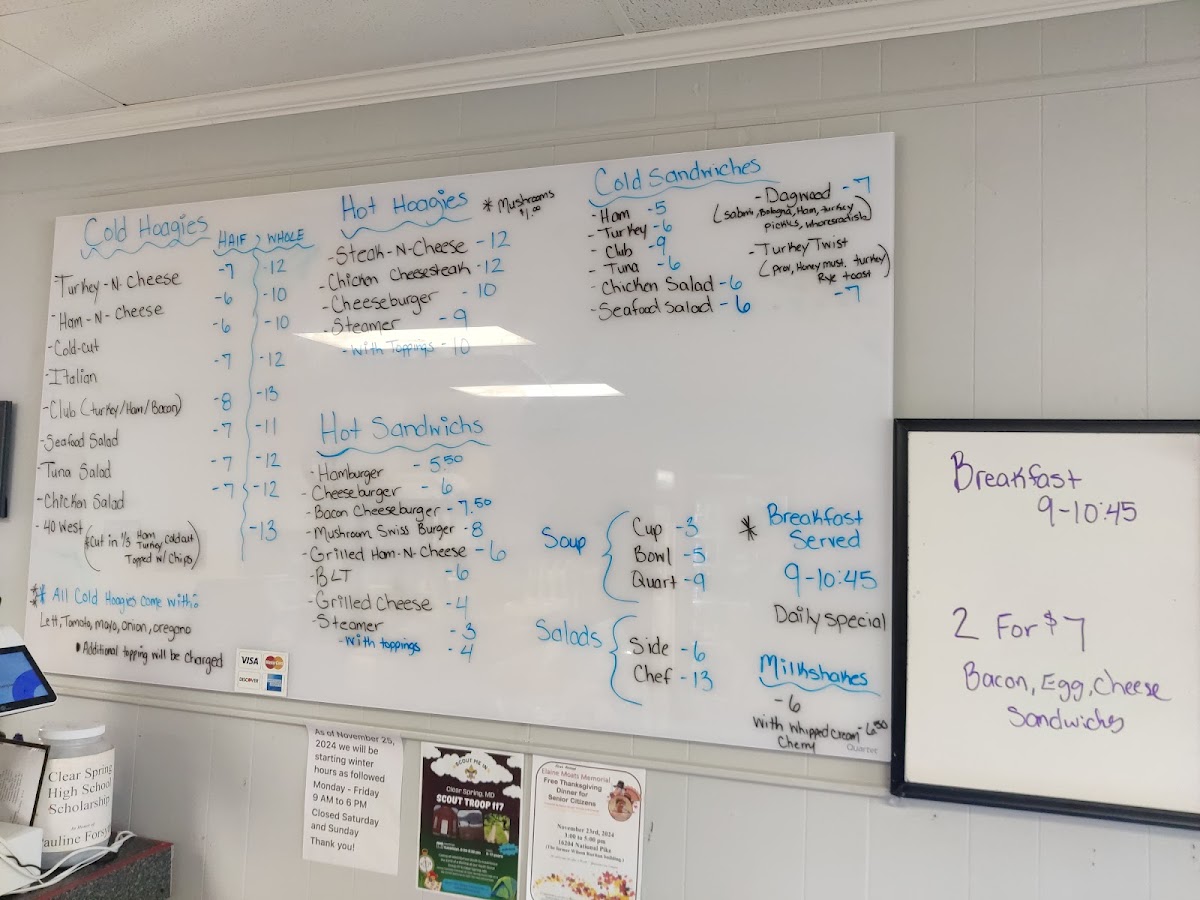 Cold Hoagies
HAlF WHOLE
-Turkey-N-Cheese -7 -12
-Ham-N-Cheese -6 -10
-Cold-cut -6 -10
-Italian -7 -12
-Club (turkey/Ham/Bacon) -8 -13
-Seafood Salad -7 -11
-Tuna Salad -7 -12
-Chicken Salad -7 -12
-40 West -13
(*Cut in 1/3 Ham,
Turkey, cold cut
Topped w/ Chips)
** All Cold Hoagies come with:
Lett, Tomato, mayo, onion, oregano
•Additional topping will be charged
VISA MasterCard
DISCOVER
Hot Hoagies
* Mushrooms
$1.00
-Steak-N-Cheese -12
-Chicken Cheesesteak -12
-Cheeseburger -10
-Steamer -9
-with Toppings -10
Hot Sandwichs
-Hamburger -5.50
-Cheeseburger -6
-Bacon Cheeseburger -7.50
-Mushroom Swiss Burger -8
-Grilled Ham-N-Cheese -6
-BLT -6
-Grilled Cheese -4
-Steamer -3
-with toppings -4
Cold Sandwiches
-Ham -5
-Turkey -6
-Club -9
-Tuna -6
-Chicken Salad -6
-Seafood Salad -6
-Dagwood -7
-Turkey Twist
Rye toast
-7
Soup
Cup -3
Bowl -5
Quart -9
Salads
Side -6
Chef -13
* Breakfast
Served
9-10:45
Daily special
Milkshakes
-6
with whipped cream -6.50
Cherry
Quartet
Breakfast
9-10:45
2 For $7
Bacon, Egg, Cheese
Sandwiches
Clear Spring
High School
Scholarship
As of November 25,
2024 we will be
starting winter
hours as followed
Monday - Friday
9 AM to 6 PM
Closed Saturday
and Sunday
Thank you!
SCOUT ME IN
Clear Spring, MD
SCOUT TROOP 117
Elaine Moats Memorial
Free Thanksgiving
Dinner for
Senior Citizens
November 23rd, 2024
1:00 to 5:00 pm
16204 National Pike